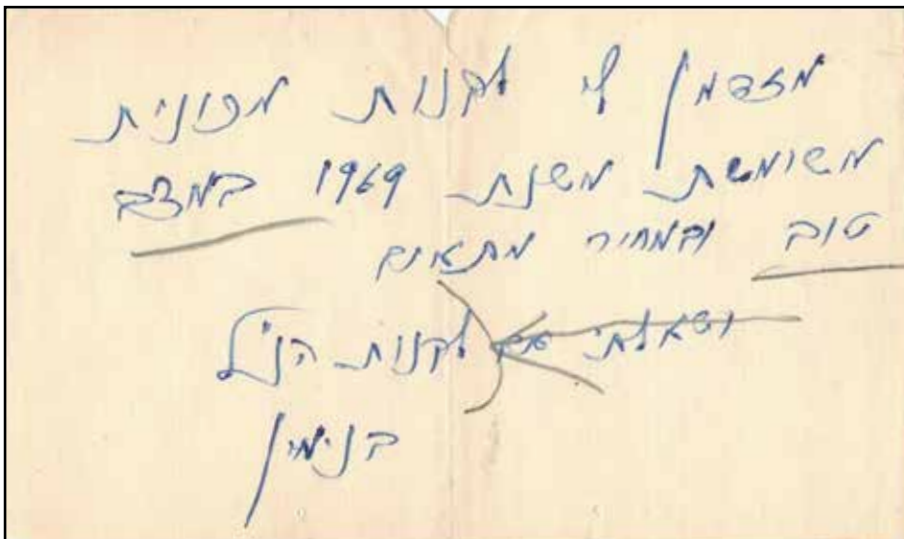 מזדמן לי לקנות מכונית
משומשת משנת 1969 במצב
טוב ובמחיר מתאים
ושאלתי אם לקנות הנ"ל
בנימין